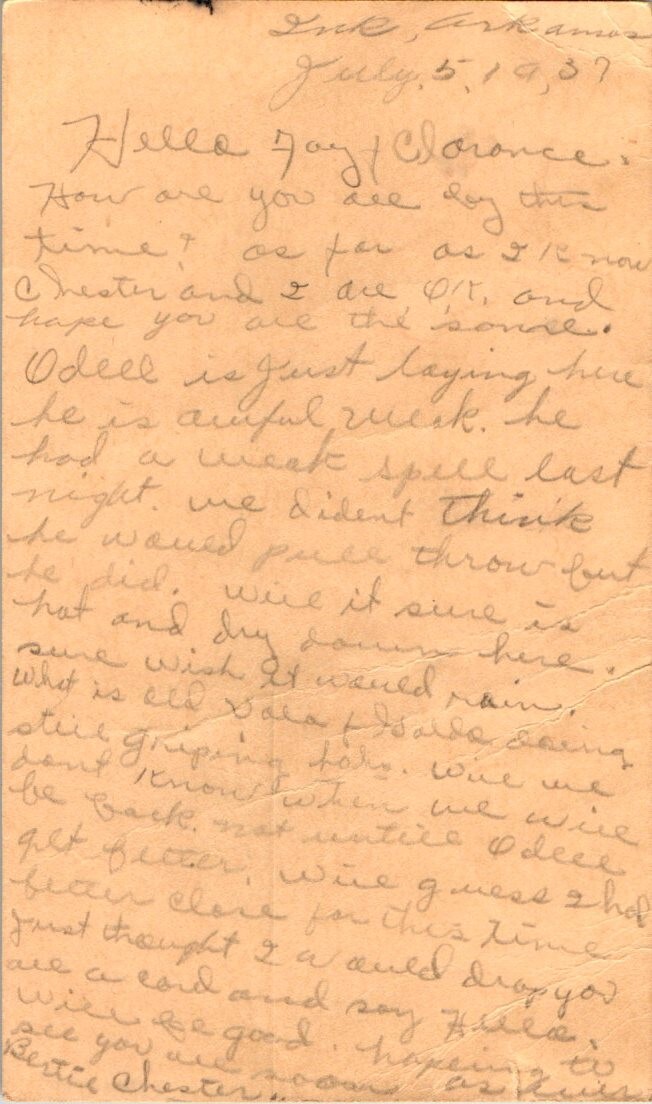 Ink, Arkansas
July, 5, 19,37
Hello Fay & Clarance.
How are you all by this
time? as far as I Know
Chester and I are O,K, and
hope you are the same.
Odell is Just laying here
he is awful weak. he
had a weak spell last
night. we dident think
he would pull throw but
he did. Will it sure is
hot and dry down here.
sure wish it would rain.
What is old & doing
still griping haha. Will we
dont Know when we will
be back. not untill Odell
get better, Will guess I had
better close for this time
Just thought I would drop you
all a card and say Hello.
will be good. hopeing to
see you all soon as ever
Bertie Chester..